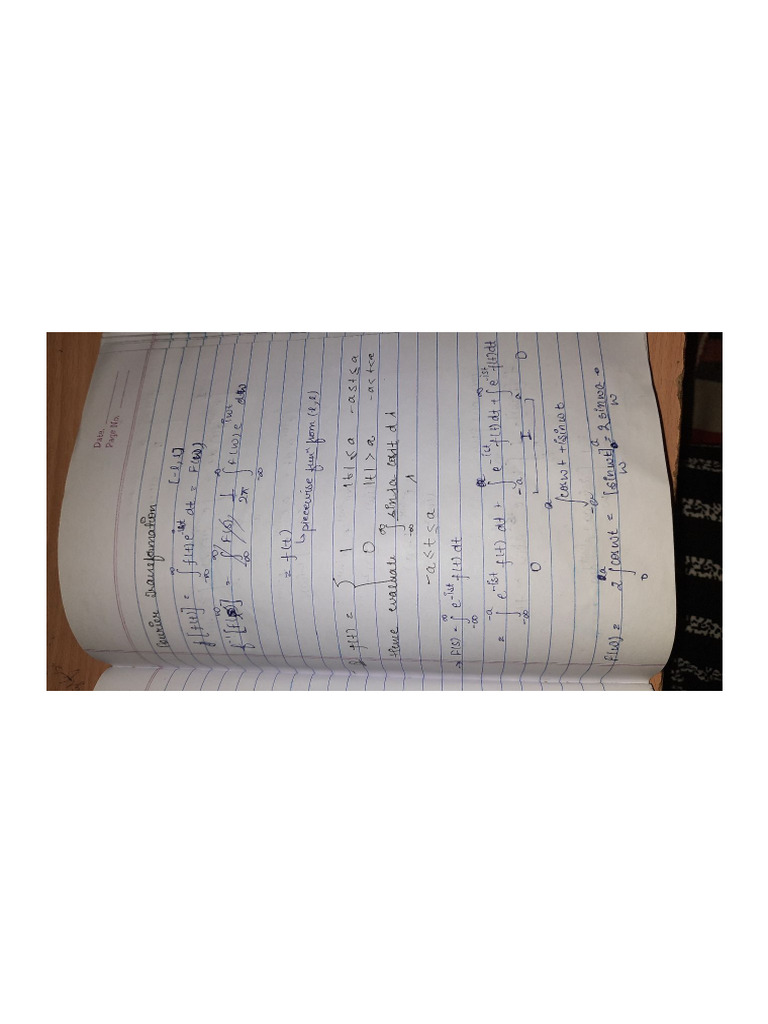 Date
Page No.
Fourier Transformation
[-l, l]
f[f(t)] = ∫_{-∞}^{∞} f(t) e^{-ist} dt = F(ω)
= ∫_{-∞}^{∞} F(s) 1/2π ∫_{-∞}^{∞} F(ω) e^{iωt} dω
= f(t)
↳ piecewise funⁿ from (l, l)
f(t) = { 1 |t| ≤ a -a ≤ t ≤ a
0 |t| > a -a < t < a
Hence evaluate ∫_{-∞}^{∞} sin sa cos st / s ds
-a ≤ t ≤ a
→ F(s) = ∫_{-∞}^{∞} e^{-ist} f(t) dt
= ∫_{-∞}^{-a} e^{-ist} f(t) dt + ∫_{-a}^{a} e^{-ist} f(t) dt + ∫_{a}^{∞} e^{-ist} f(t) dt
0 I 0
∫_{-a}^{a} cos ωt + i sin ωt
F(ω) = 2 ∫_{0}^{a} cos ωt = [sin ωt / ω]_{0}^{a} = 2 sin ωa / ω